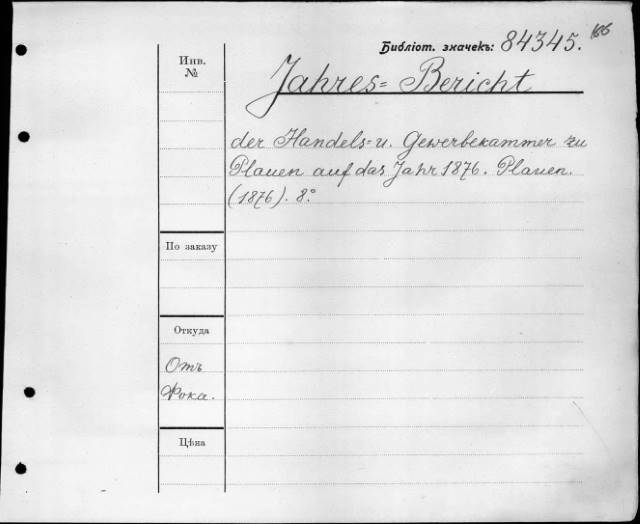 166
Библіот. значекъ: 84345.
Инв.
№
Jahres=Bericht
der Handels= u. Gewerbekammer zu
Plauen auf das Jahr 1876. Plauen.
(1876). 8°
По заказу
Откуда
Отъ
Фока.
Цѣна